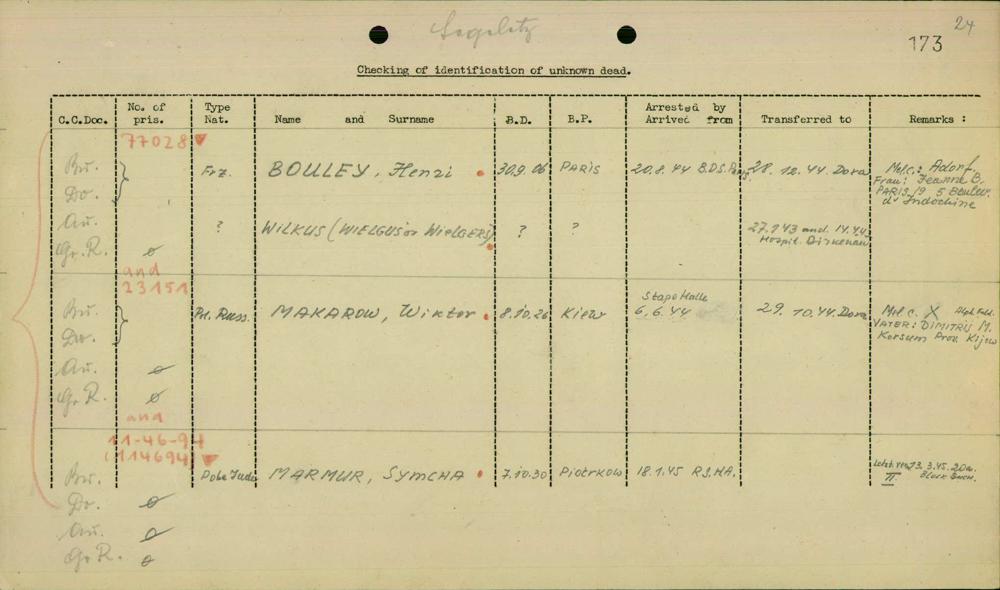 24
173
Checking of identification of unknown dead.
C.C.Doc. No. of pris. Type Nat. Name and Surname B.D. B.P. Arrested by Arrived from Transferred to Remarks :
77028
Bu. Frz. BOULEY, Henri 30.9.06 PARIS 20.8.44 B.D.S. Paris. 28.12.44 Dora Mel.c.: Adorf
Do. Frau: Jeanne B.
PARIS 19 5 Boulev.
d'Indochine
Au. ? WILKUS (WIELGUS or WIELGERS) ? ? 27.1.43 and 14.4.43
Gr.R. ø Hospit. Birkenau
and
23151
Bu. Pol. Russ. MAKAROW, Wiktor 8.10.26 Kiew Stapo Halle 29.10.44. Dora Mel c. X
6.6.44 VATER: DIMITRIJ M.
Do. Korsum Prov. Kijew
Au. ø
Gr.R. ø
and
11-46-94
(114694)
Bu. Pole Jude MARMUR, SymCHA 7.10.30 Piotrkow 18.1.45 R.S.HA. 13.3.45.
II Block Buch.
Do. ø
Au. ø
Gr.R. ø